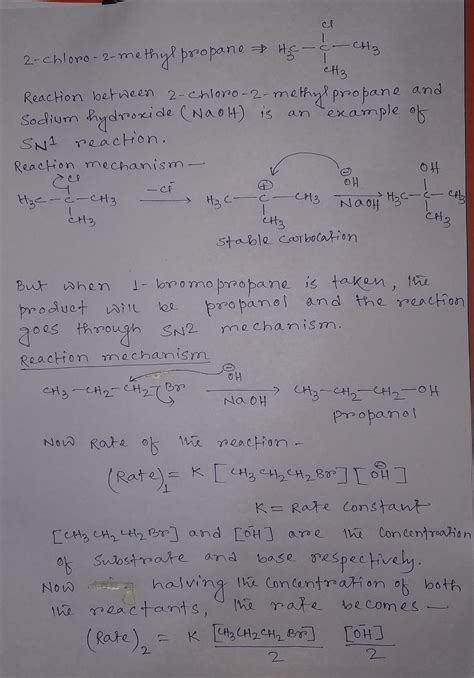 Cl
2-chloro-2-methylpropane ⇒ H3C — C — CH3
CH3
Reaction between 2-chloro-2-methylpropane and
Sodium hydroxide (NaOH) is an example of
SN1 reaction.
Reaction mechanism —
Cl ⊖OH OH
H3C — C — CH3 -Cl⁻ → H3C — C⊕ — CH3 NaOH → H3C — C — CH3
CH3 CH3 CH3
stable carbocation
But when 1-bromopropane is taken, the
product will be propanol and the reaction
goes through SN2 mechanism.
Reaction mechanism
⊖OH
CH3 — CH2 — CH2 — Br NaOH → CH3 — CH2 — CH2 — OH
propanol
Now Rate of the reaction —
(Rate)1 = K [CH3CH2CH2Br] [⊖OH]
K = Rate constant
[CH3CH2CH2Br] and [ŌH] are the concentration
of substrate and base respectively.
Now halving the concentration of both
the reactants, the rate becomes —
(Rate)2 = K [CH3CH2CH2Br]/2 [ŌH]/2